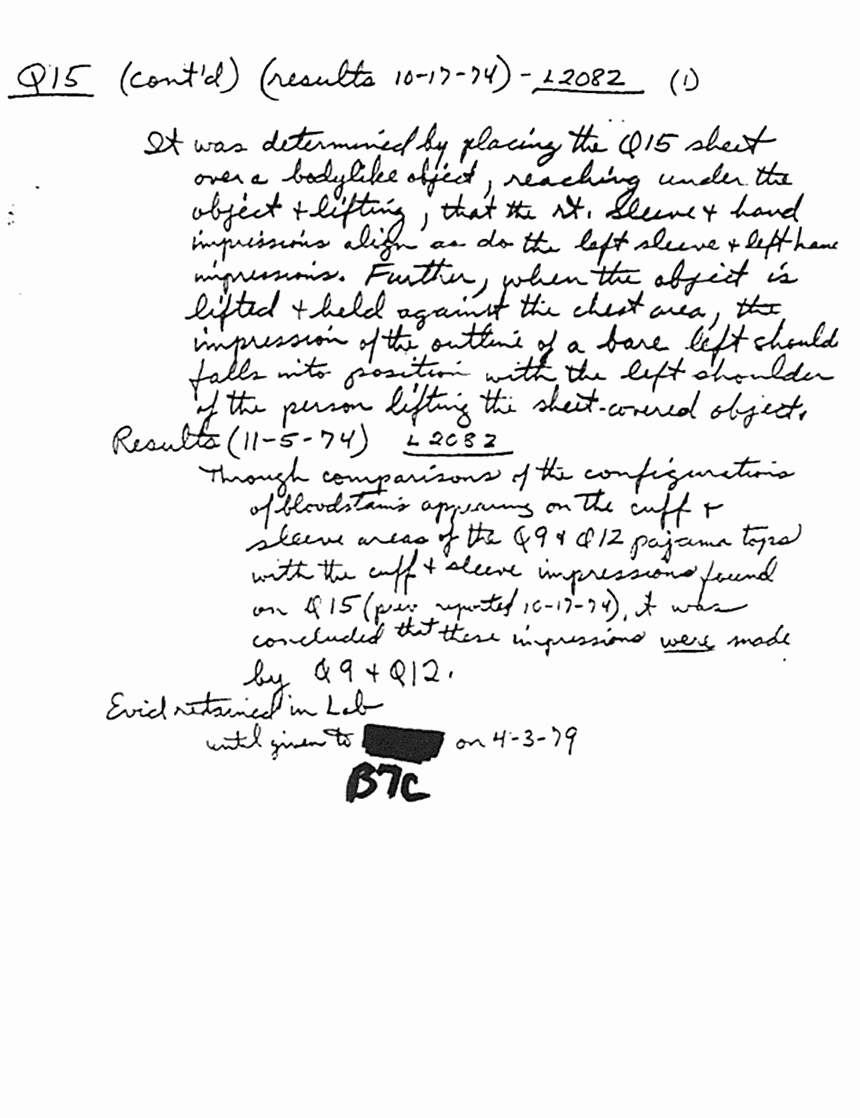 Q15 (cont'd) (results 10-17-74) - L2082 (1)
It was determined by placing the Q15 sheet
over a bodylike object, reaching under the
object + lifting, that the rt. sleeve + hand
impressions align as do the left sleeve + left hand
impressions. Further, when the object is
lifted + held against the chest area, the
impression of the outline of a bare left should
falls into position with the left shoulder
of the person lifting the sheet-covered object.
Results (11-5-74) L2082
Through comparisons of the configurations
of bloodstains appearing on the cuff +
sleeve areas of the Q9 & Q12 pajama tops
with the cuff + sleeve impressions found
on Q15 (prev reported 10-17-74), it was
concluded that these impressions were made
by Q9 + Q12.
Evid retained in Lab
until given to on 4-3-79
B7C